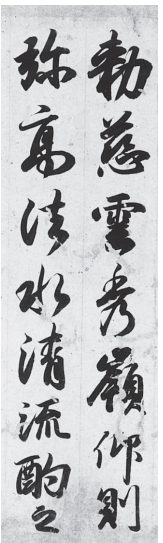 勅慈雲秀嶺仰則
弥高法水清流酌之